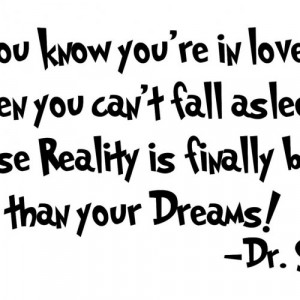 ou know you're in love
en you can't fall aslee
se Reality is finally b
than your Dreams!
-Dr. S